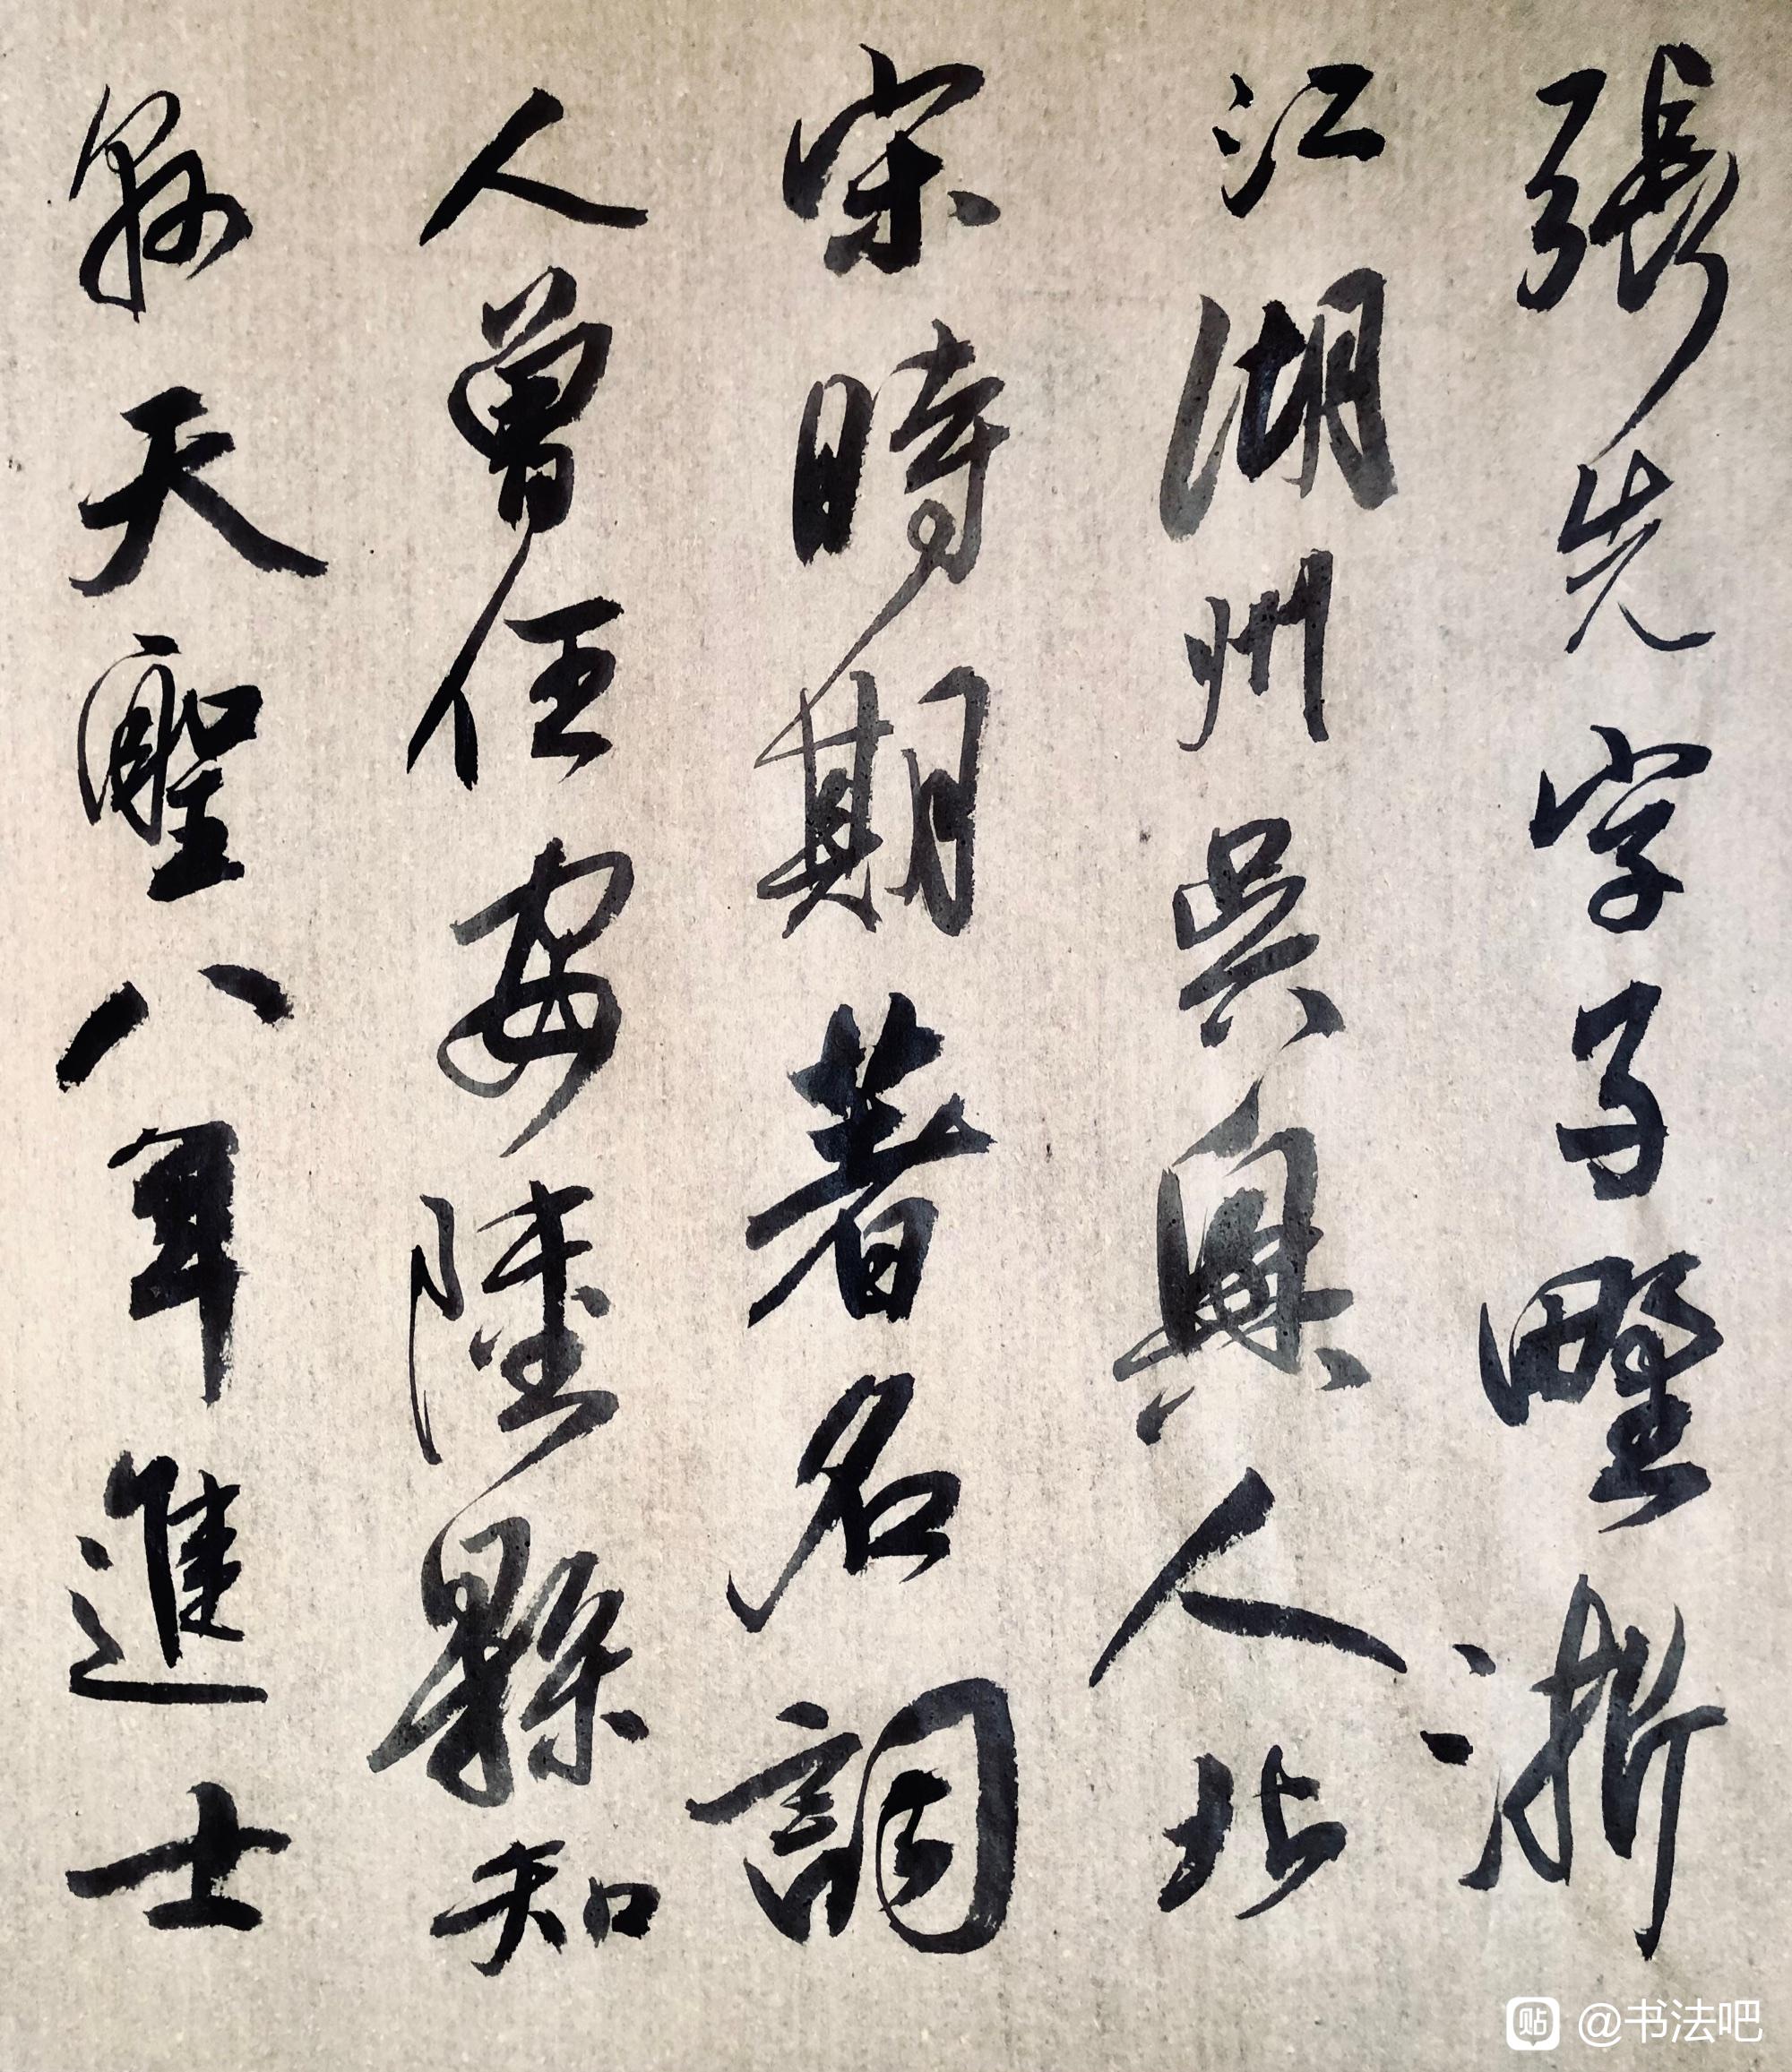 張先字子野浙
江湖州吳興人北
宋時期著名詞
人曾任安陸縣知
縣天聖八年進士
貼 @书法吧